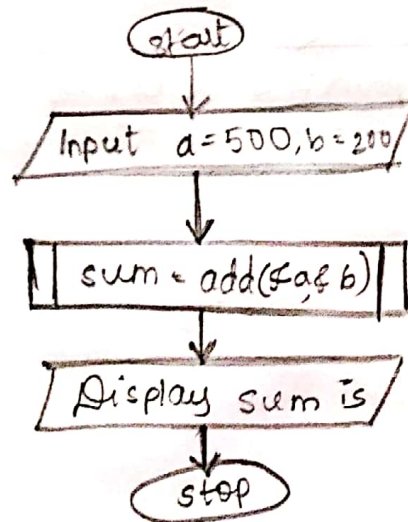 start
Input a=500, b=200
sum = add(&a,& b)
Display sum is
stop